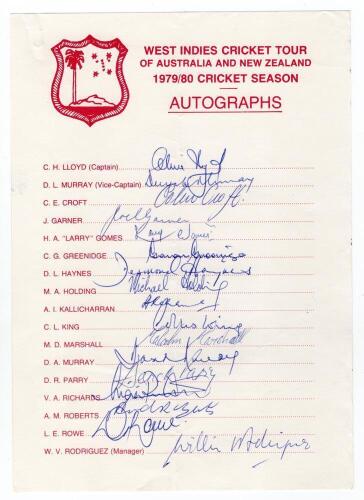 WEST INDIES CRICKET TOUR
OF AUSTRALIA AND NEW ZEALAND
1979/80 CRICKET SEASON
AUTOGRAPHS
C. H. LLOYD (Captain) Clive Lloyd
D. L. MURRAY (Vice-Captain) Deryck Murray
C. E. CROFT Colin Croft.
J. GARNER Joel Garner
H. A. "LARRY" GOMES Larry Gomes
C. G. GREENIDGE Gordon Greenidge
D. L. HAYNES Desmond Haynes
M. A. HOLDING Michael Holding
A. I. KALLICHARRAN
C. L. KING Collis King
M. D. MARSHALL Malcolm Marshall
D. A. MURRAY David Murray
D. R. PARRY
V. A. RICHARDS
A. M. ROBERTS
L. E. ROWE L Rowe
W. V. RODRIGUEZ (Manager) Willie Rodriguez